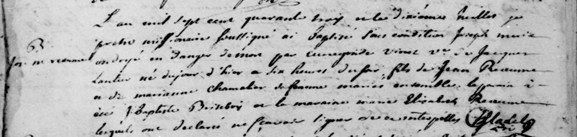 L'an mil sept cent quarante trois et le dixieme Juillet je
prêtre missionaire soussigné ai baptisé sous condition joseph marie
jos. m. reaume
ondoyé en danger de mort par Cunegonde vieme vve. Jacques
né du jour d'hier a six heures du soir, fils de Jean Reaume
et de marianne Chevalier sa femme mariés ensemble, le parain a
été J. Baptiste Brisebois et la maraine marie Elizabeth Reaume
lesquels ont declaré ne sçavoir signer de ce interpellés